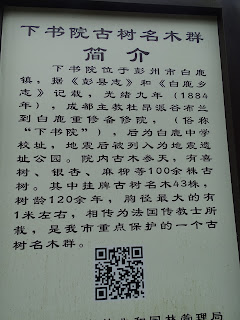 下书院古树名木群
简 介
下书院位于彭州市白鹿
镇，据《彭县志》和《白鹿乡
志》记载，光绪九年（1884
年），成都主教杜昂派谷布兰
到白鹿重修备修院，（俗称
“下书院”），后为白鹿中学
校址，地震后被列入为地震遗
址公园。院内古木参天，有喜
树、银杏、麻柳等100余株古
树。其中挂牌古树名木43株，
树龄120余年，胸径最大的有
1米左右，相传为法国传教士所
栽，是我市重点保护的一个古
树名木群。